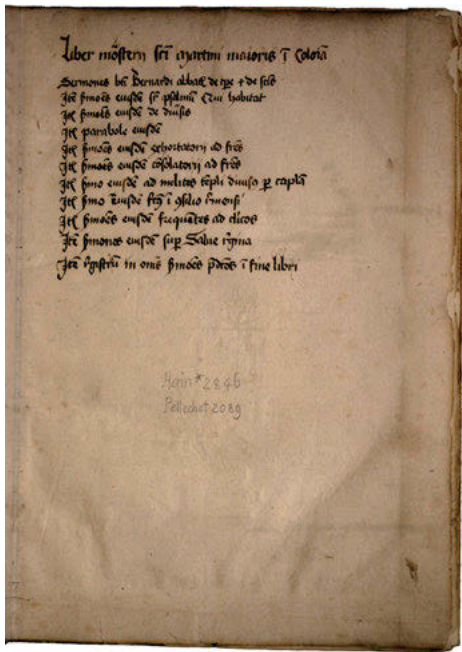 Liber mōsterij sci martini maioris ī Coloīa
Sermones bti Bernardi abbat̄ de tp̄e + de sc̄is
Itē s̄moēs eiusdē sr̄ psalmū Qui habitat
Itē s̄moēs eiusdē de diūsis
Itē parabole eiusdē
Itē s̄moēs eiusdē exhortatorij ad fr̄es
Itē s̄moēs eiusdē cōsolatorij ad fr̄es
Itē s̄mo eiusdē ad milites tēpli diuisꝰ ꝑ capl̄a
Itē s̄mo eiusdē ī ꝯsilio rēmensi
Itē s̄moēs eiusdē frequētes ad cl̄icos
Itē s̄mones eiusdē suꝑ Salue rēgina
Itē rēgistrū in om̄s s̄moēs p̄dc̄os ī fine libri
Hain * 2846
Pellechet 2089